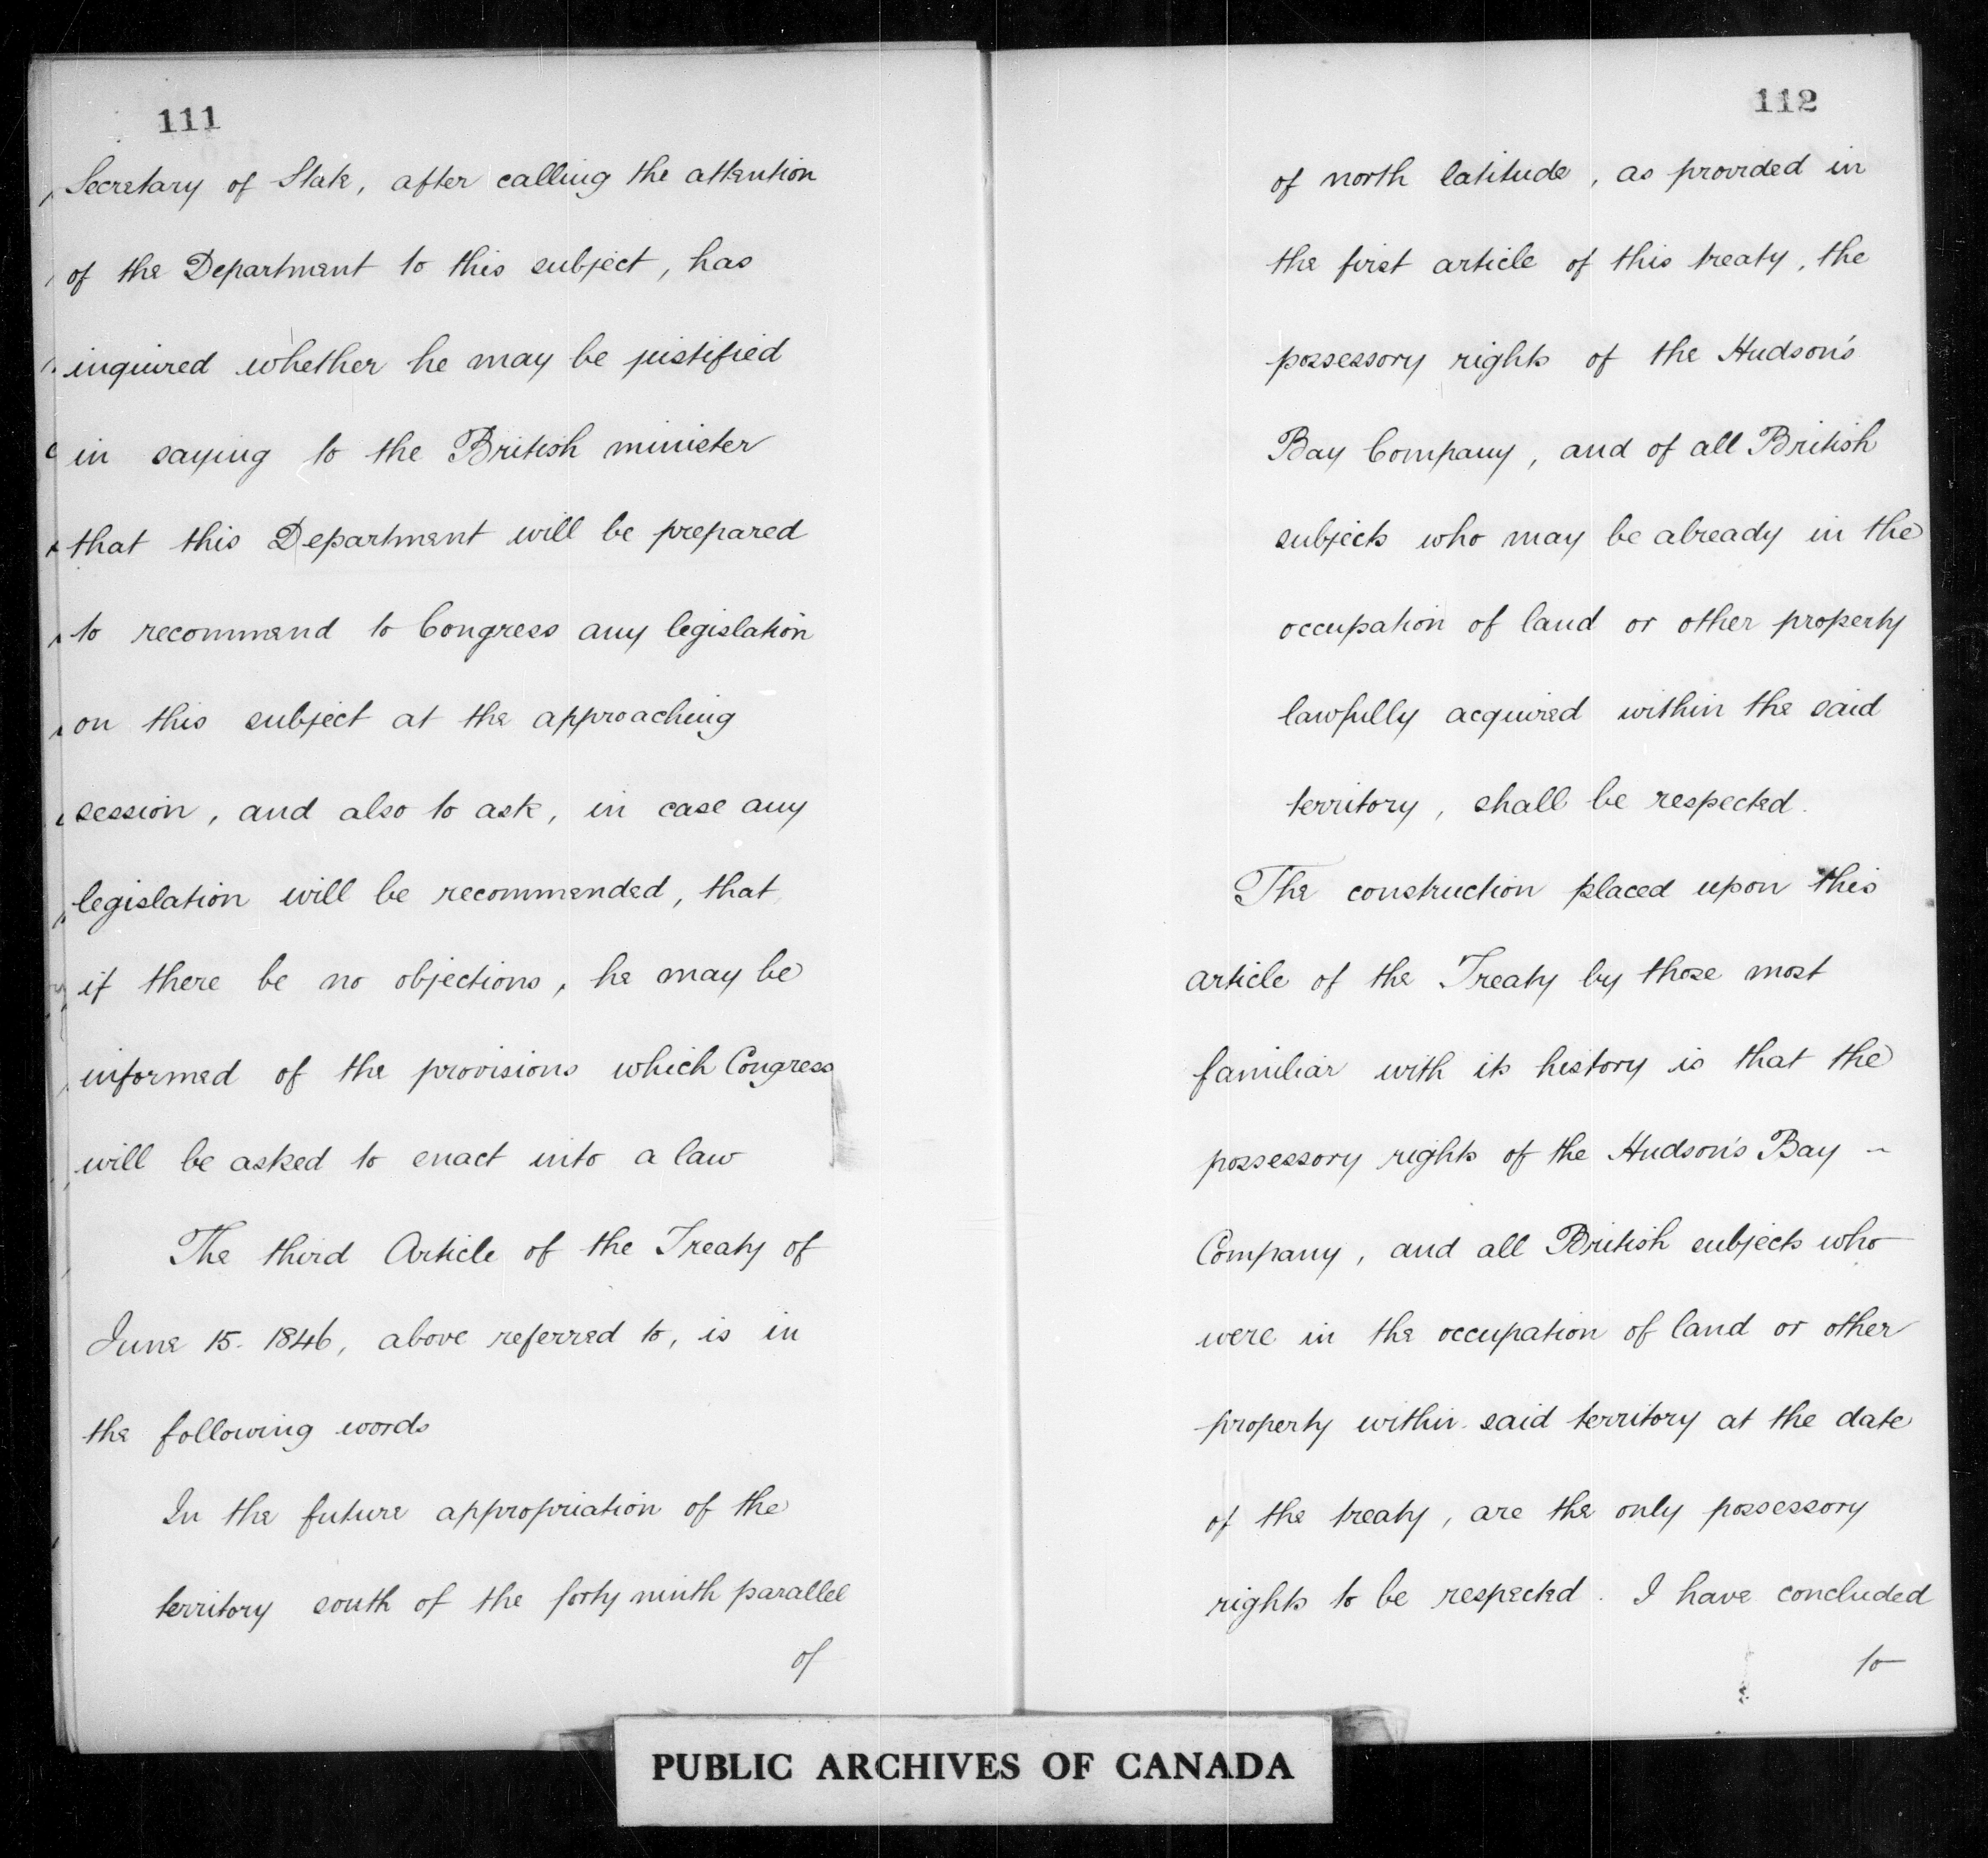 111
Secretary of State, after calling the attention
of the Department to this subject, has
inquired whether he may be justified
in saying to the British minister
that this Department will be prepared
to recommend to Congress any legislation
on this subject at the approaching
session, and also to ask, in case any
legislation will be recommended, that
if there be no objections, he may be
informed of the provisions which Congress
will be asked to enact into a law
The third Article of the Treaty of
June 15. 1846, above referred to, is in
the following words
In the future appropriation of the
territory south of the forty ninth parallel
of
112
of north latitude, as provided in
the first article of this treaty, the
possessory rights of the Hudson's
Bay Company, and of all British
subjects who may be already in the
occupation of land or other property
lawfully acquired within the said
territory, shall be respected.
The construction placed upon this
article of the Treaty by those most
familiar with its history is that the
possessory rights of the Hudson's Bay -
Company, and all British subjects who
were in the occupation of land or other
property within said territory at the date
of the treaty, are the only possessory
rights to be respected. I have concluded
to
PUBLIC ARCHIVES OF CANADA